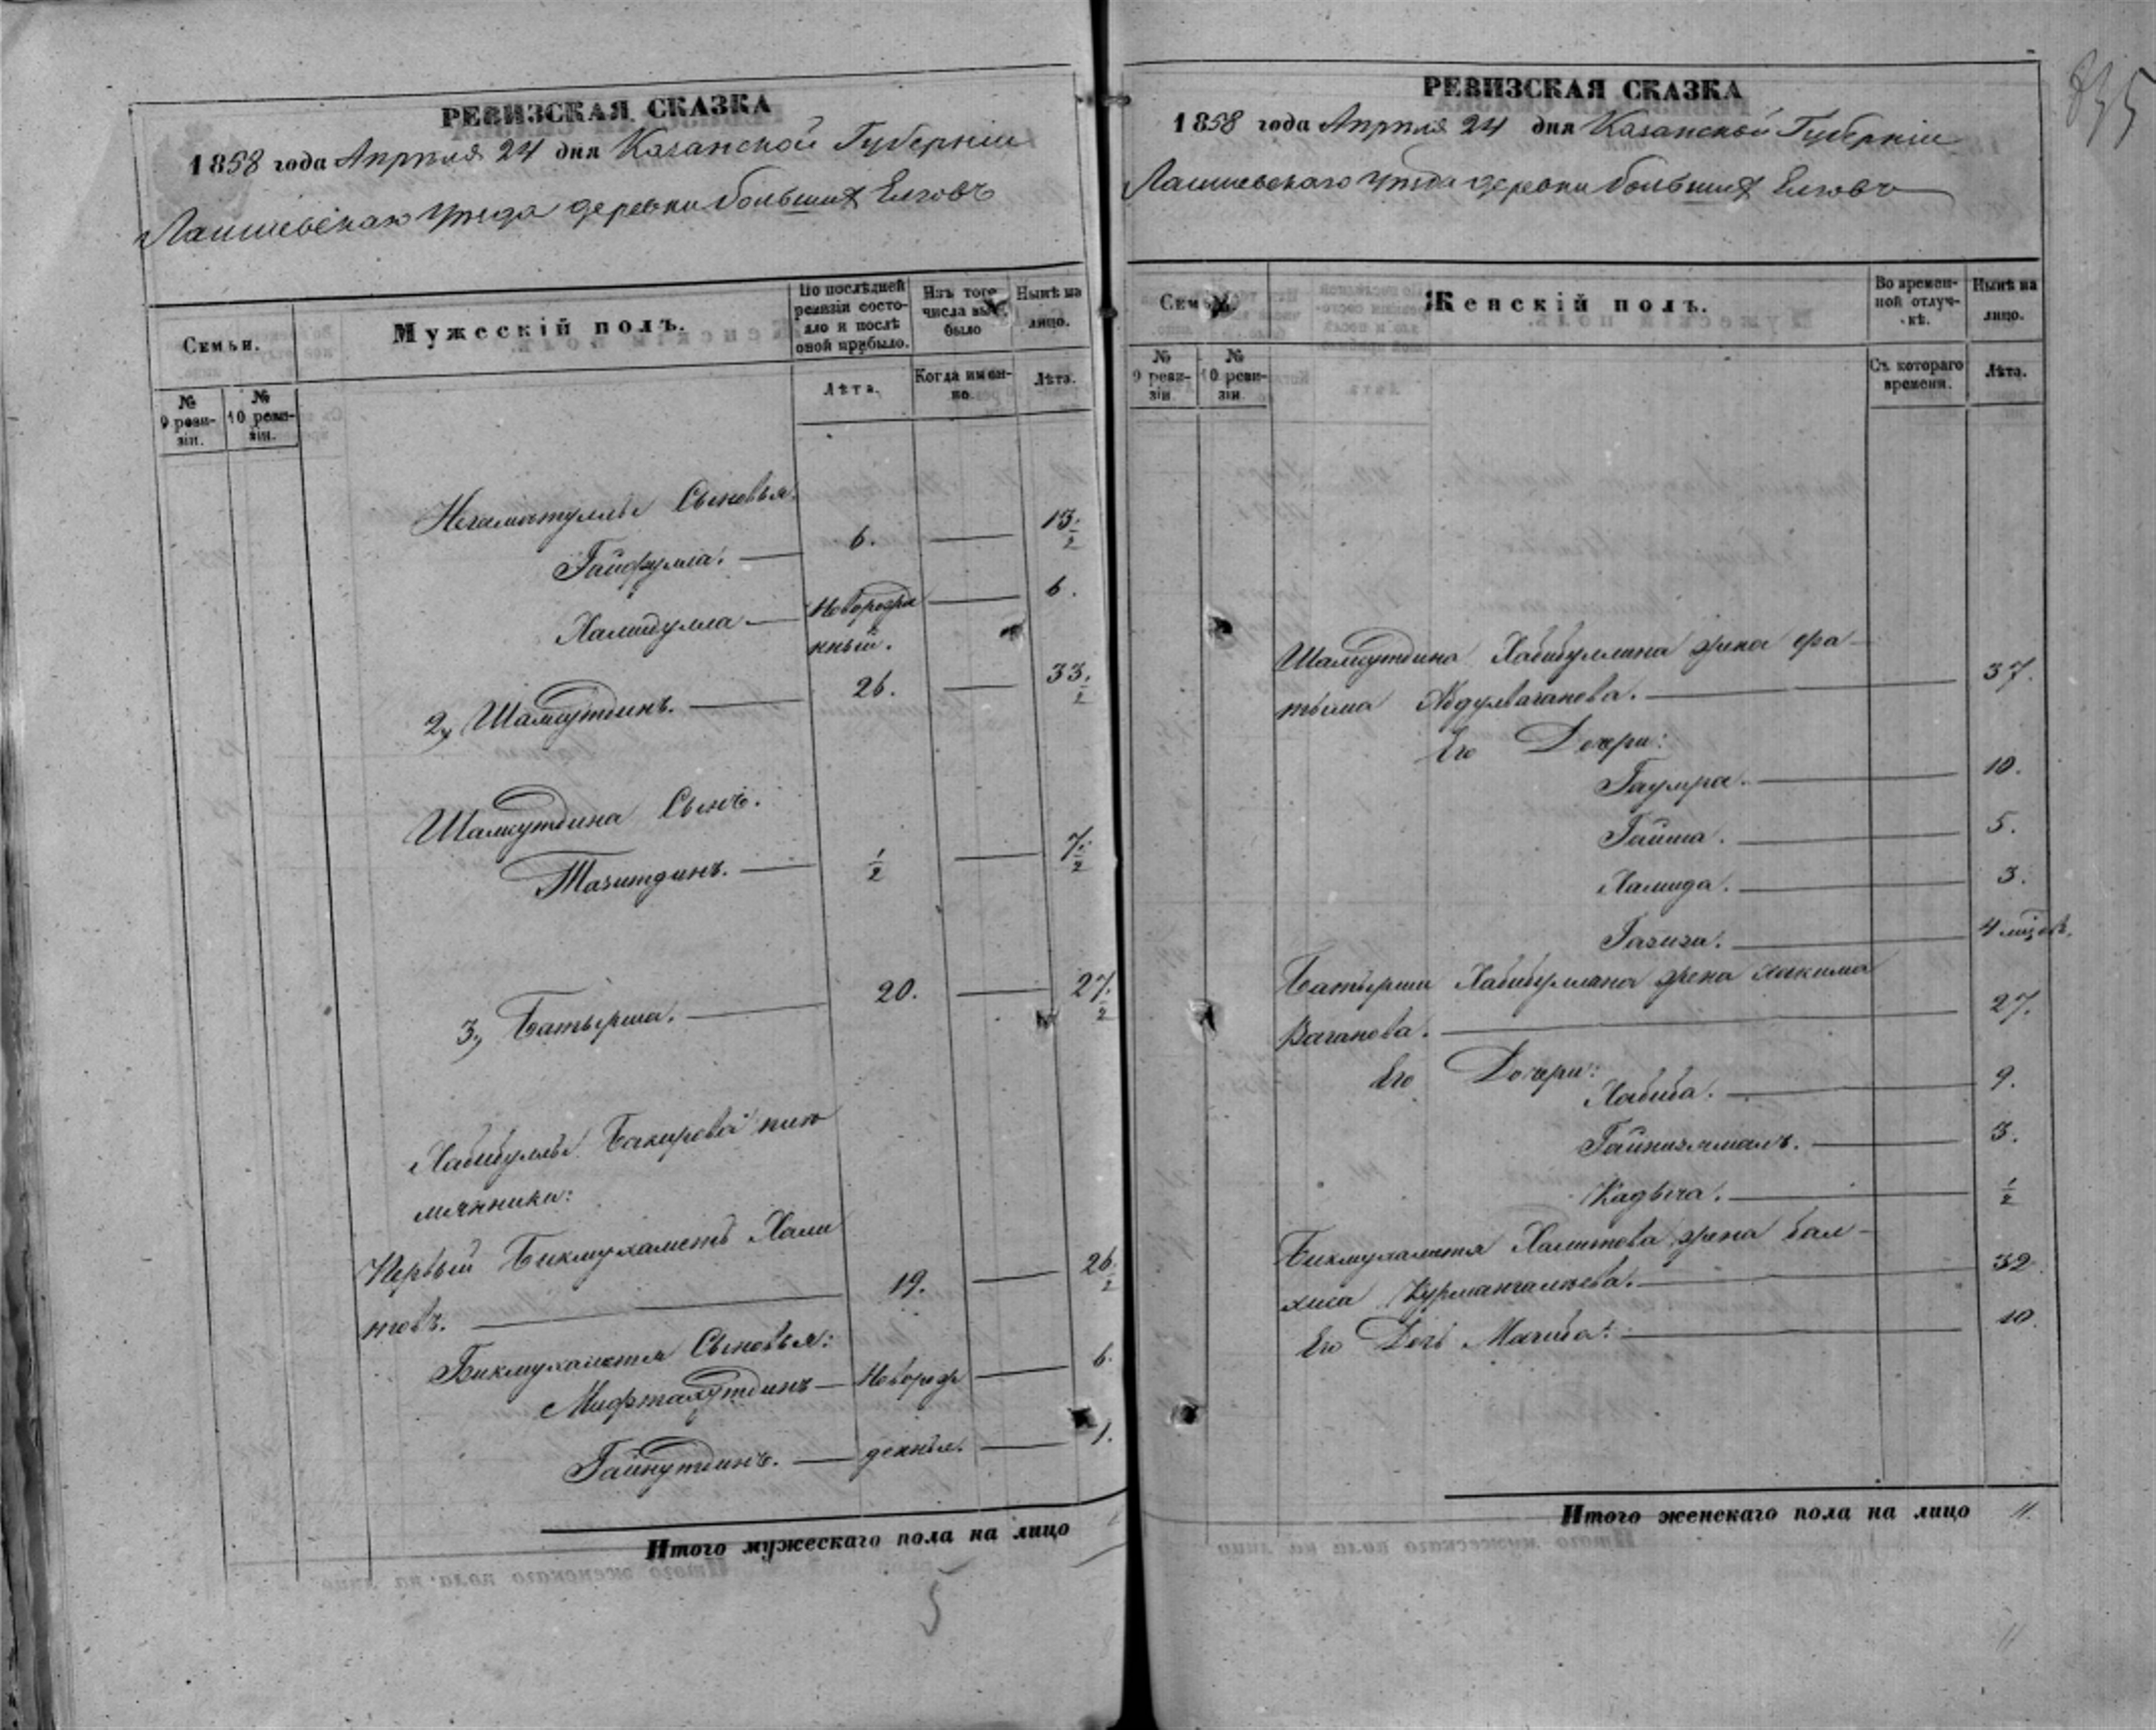 РЕВИЗСКАЯ СКАЗКА
1858 года Апреля 24 дня Казанской Губерніи
Лаишевскаго Уезда деревни большихъ Елговъ
Семьи.
Мужескій полъ.
По послѣдней ревизіи состояло и послѣ оной прибыло.
Изъ того числа выбыло
Нынѣ на лицо.
№ 9 ревизіи.
№ 10 ревизіи.
Лѣта.
Когда именно.
Лѣта.
Негаматуллы Сыновья
Гайфулла. — 6. — 13 1/2
Халиулла — Новорожде — 6.
нный.
2, Шамсутдинъ. — 26. — 33 1/2
Шамсутдина Сынъ.
Тазитдинъ. — 1/2 — 7 1/2
3, Батырша. — 20. — 27 1/2
Хабибуллы Бакирова пле
мянники:
Первый Бикмухаметъ Хали
товъ. — 19. — 26 1/2
Бикмухаметя Сыновья:
Мифтахутдинъ — Новорож — 6.
Гайнутдинъ. — денные. — 1.
Итого мужескаго пола на лицо
5
РЕВИЗСКАЯ СКАЗКА
835
1858 года Апреля 24 дня Казанской Губерніи
Лаишевскаго Уезда деревни большихъ Елговъ
Семьи.
Женскій полъ.
Во временной отлучкѣ.
Нынѣ на лицо.
№ 9 ревизіи.
№ 10 ревизіи.
Съ котораго времени.
Лѣта.
Шамсутдина Хабибуллина жена Фа-
тыма Абдулваганова. — 37.
Его Дочери:
Гаулра. — 10.
Гайша. — 5.
Хамида. — 3.
Газиза. — 4
Батырши Хабибуллина жена Хакима
Ваганова. — 27.
Его Дочери:
Хабиба. — 9.
Гайнизямалъ. — 3.
Кадыча. — 1/2
Бикмухаметя Халитова жена Бал-
хиса Курмангалеева. — 32
Его Дочь Магиба: — 10.
Итого женскаго пола на лицо 11.
11